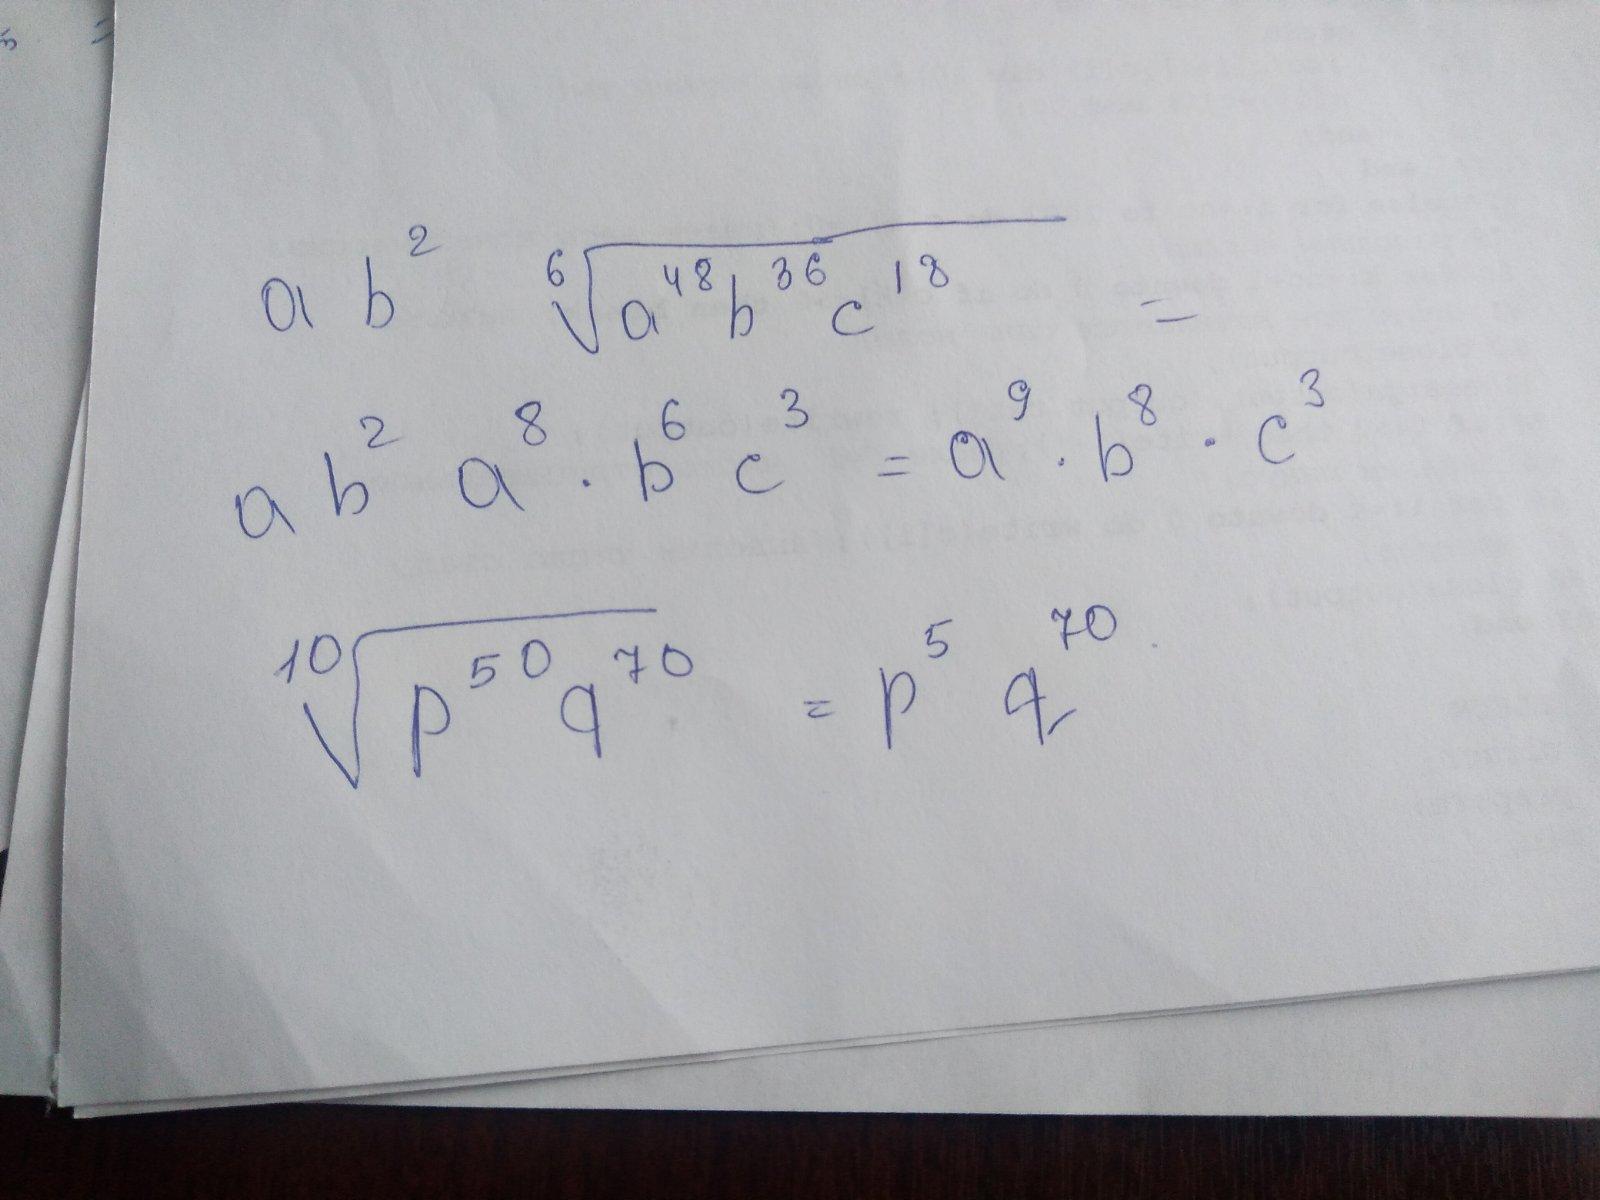 a b² ⁶√(a⁴⁸b³⁶c¹⁸) =
a b² a⁸ · b⁶ c³ = a⁹ · b⁸ · c³
¹⁰√(p⁵⁰q⁷⁰) = p⁵ q⁷⁰